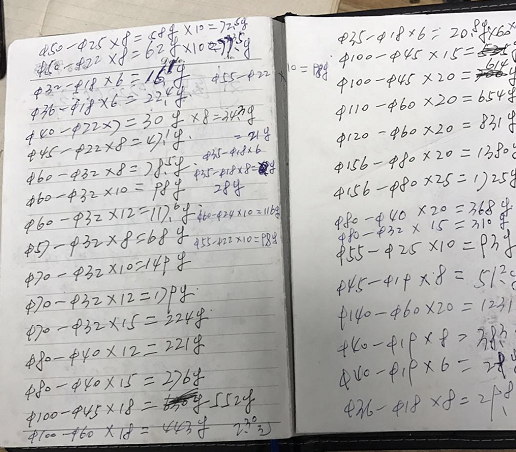 φ50-φ25×8=58g×10=72.5g
φ50-φ22×8=62g×10=77.5g
φ32-φ18×6=
φ36-φ18×6=22.4g
φ55-φ22×10=98g
φ40-φ22×7=30g×8=34.3g
φ45-φ22×8=47.1g
=21g
φ60-φ32×8=78.5g
φ35-φ18×6
φ60-φ32×10=98g
φ35-φ18×8=
28g
φ60-φ32×12=117.6g
φ60-φ24×10=116g
φ57-φ32×8=68g
φ55-φ22×10=98g
φ70-φ32×10=149g
φ70-φ32×12=179g
φ70-φ32×15=224g
φ80-φ40×12=221g
φ80-φ40×15=276g
φ100-φ45×18=552g
φ100-φ60×18=443g
φ35-φ18×6=20.8g
φ100-φ45×15=460
φ100-φ45×20=614
φ110-φ60×20=654g
φ120-φ60×20=831g
φ156-φ80×20=1380g
φ156-φ80×25=1725g
φ80-φ40×20=368g
φ80-φ32×15=310g
φ55-φ25×10=93g
φ45-φ19×8=51.2g
φ140-φ60×20=1231
φ40-φ19×8=38.3
φ40-φ19×6=28.8
φ36-φ18×8=29.8